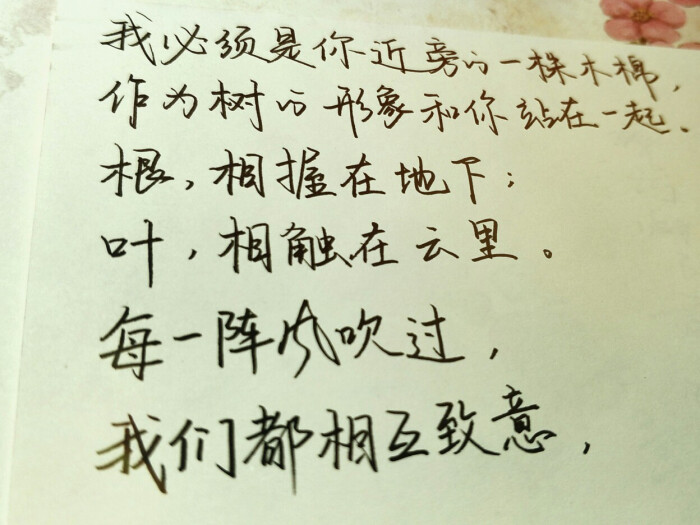 我必须是你近旁的一株木棉，
作为树的形象和你站在一起。
根，相握在地下；
叶，相触在云里。
每一阵风吹过，
我们都相互致意，